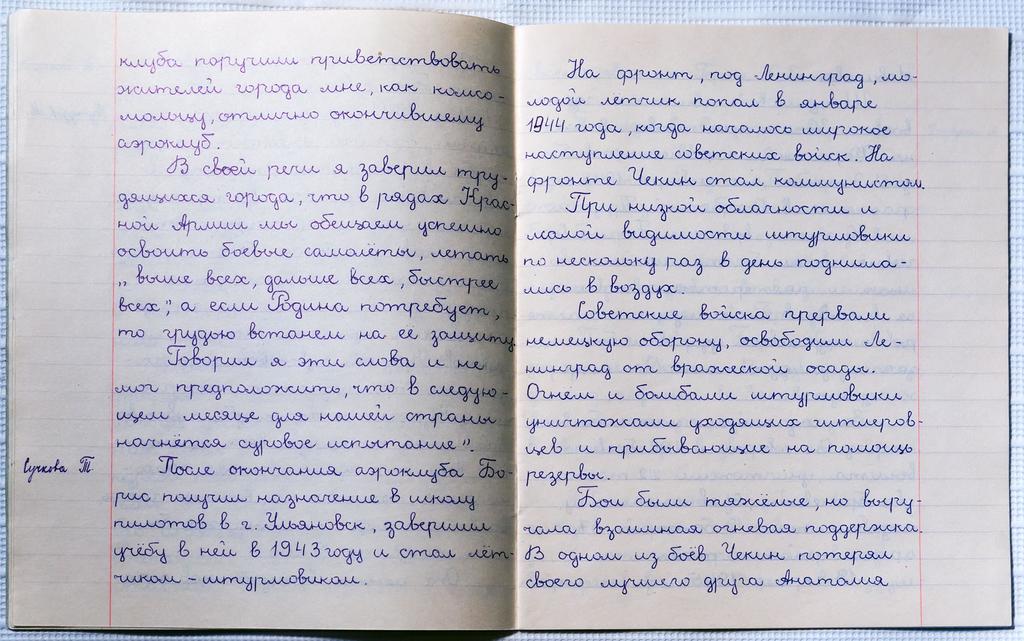 клуба поручили приветствовать
жителей города мне, как комсо-
мольцу, отлично окончившему
аэроклуб.
В своей речи я заверил тру-
дящихся города, что в рядах Крас-
ной Армии мы обещаем успешно
освоить боевые самолёты, летать
„выше всех, дальше всех, быстрее
всех”, а если Родина потребует,
то грудью встанем на её защиту.
Говорил я эти слова и не
мог предположить, что в следую-
щем месяце для нашей страны
начнётся суровое испытание”.
Сучкова Т.
После окончания аэроклуба Бо-
рис получил назначение в школу
пилотов в г. Ульяновск, завершил
учёбу в ней в 1943 году и стал лёт-
чиком-штурмовиком.
На фронт, под Ленинград, мо-
лодой лётчик попал в январе
1944 года, когда началось широкое
наступление советских войск. На
фронте Чекин стал коммунистом.
При низкой облачности и
малой видимости штурмовики
по нескольку раз в день поднима-
лись в воздух.
Советские войска прервали
немецкую оборону, освободили Ле-
нинград от вражеской осады.
Огнём и бомбами штурмовики
уничтожали уходящих гитлеров-
цев и прибывающие на помощь
резервы.
Бои были тяжёлые, но выру-
чала взаимная огневая поддержка.
В одном из боёв Чекин потерял
своего лучшего друга Анатолия